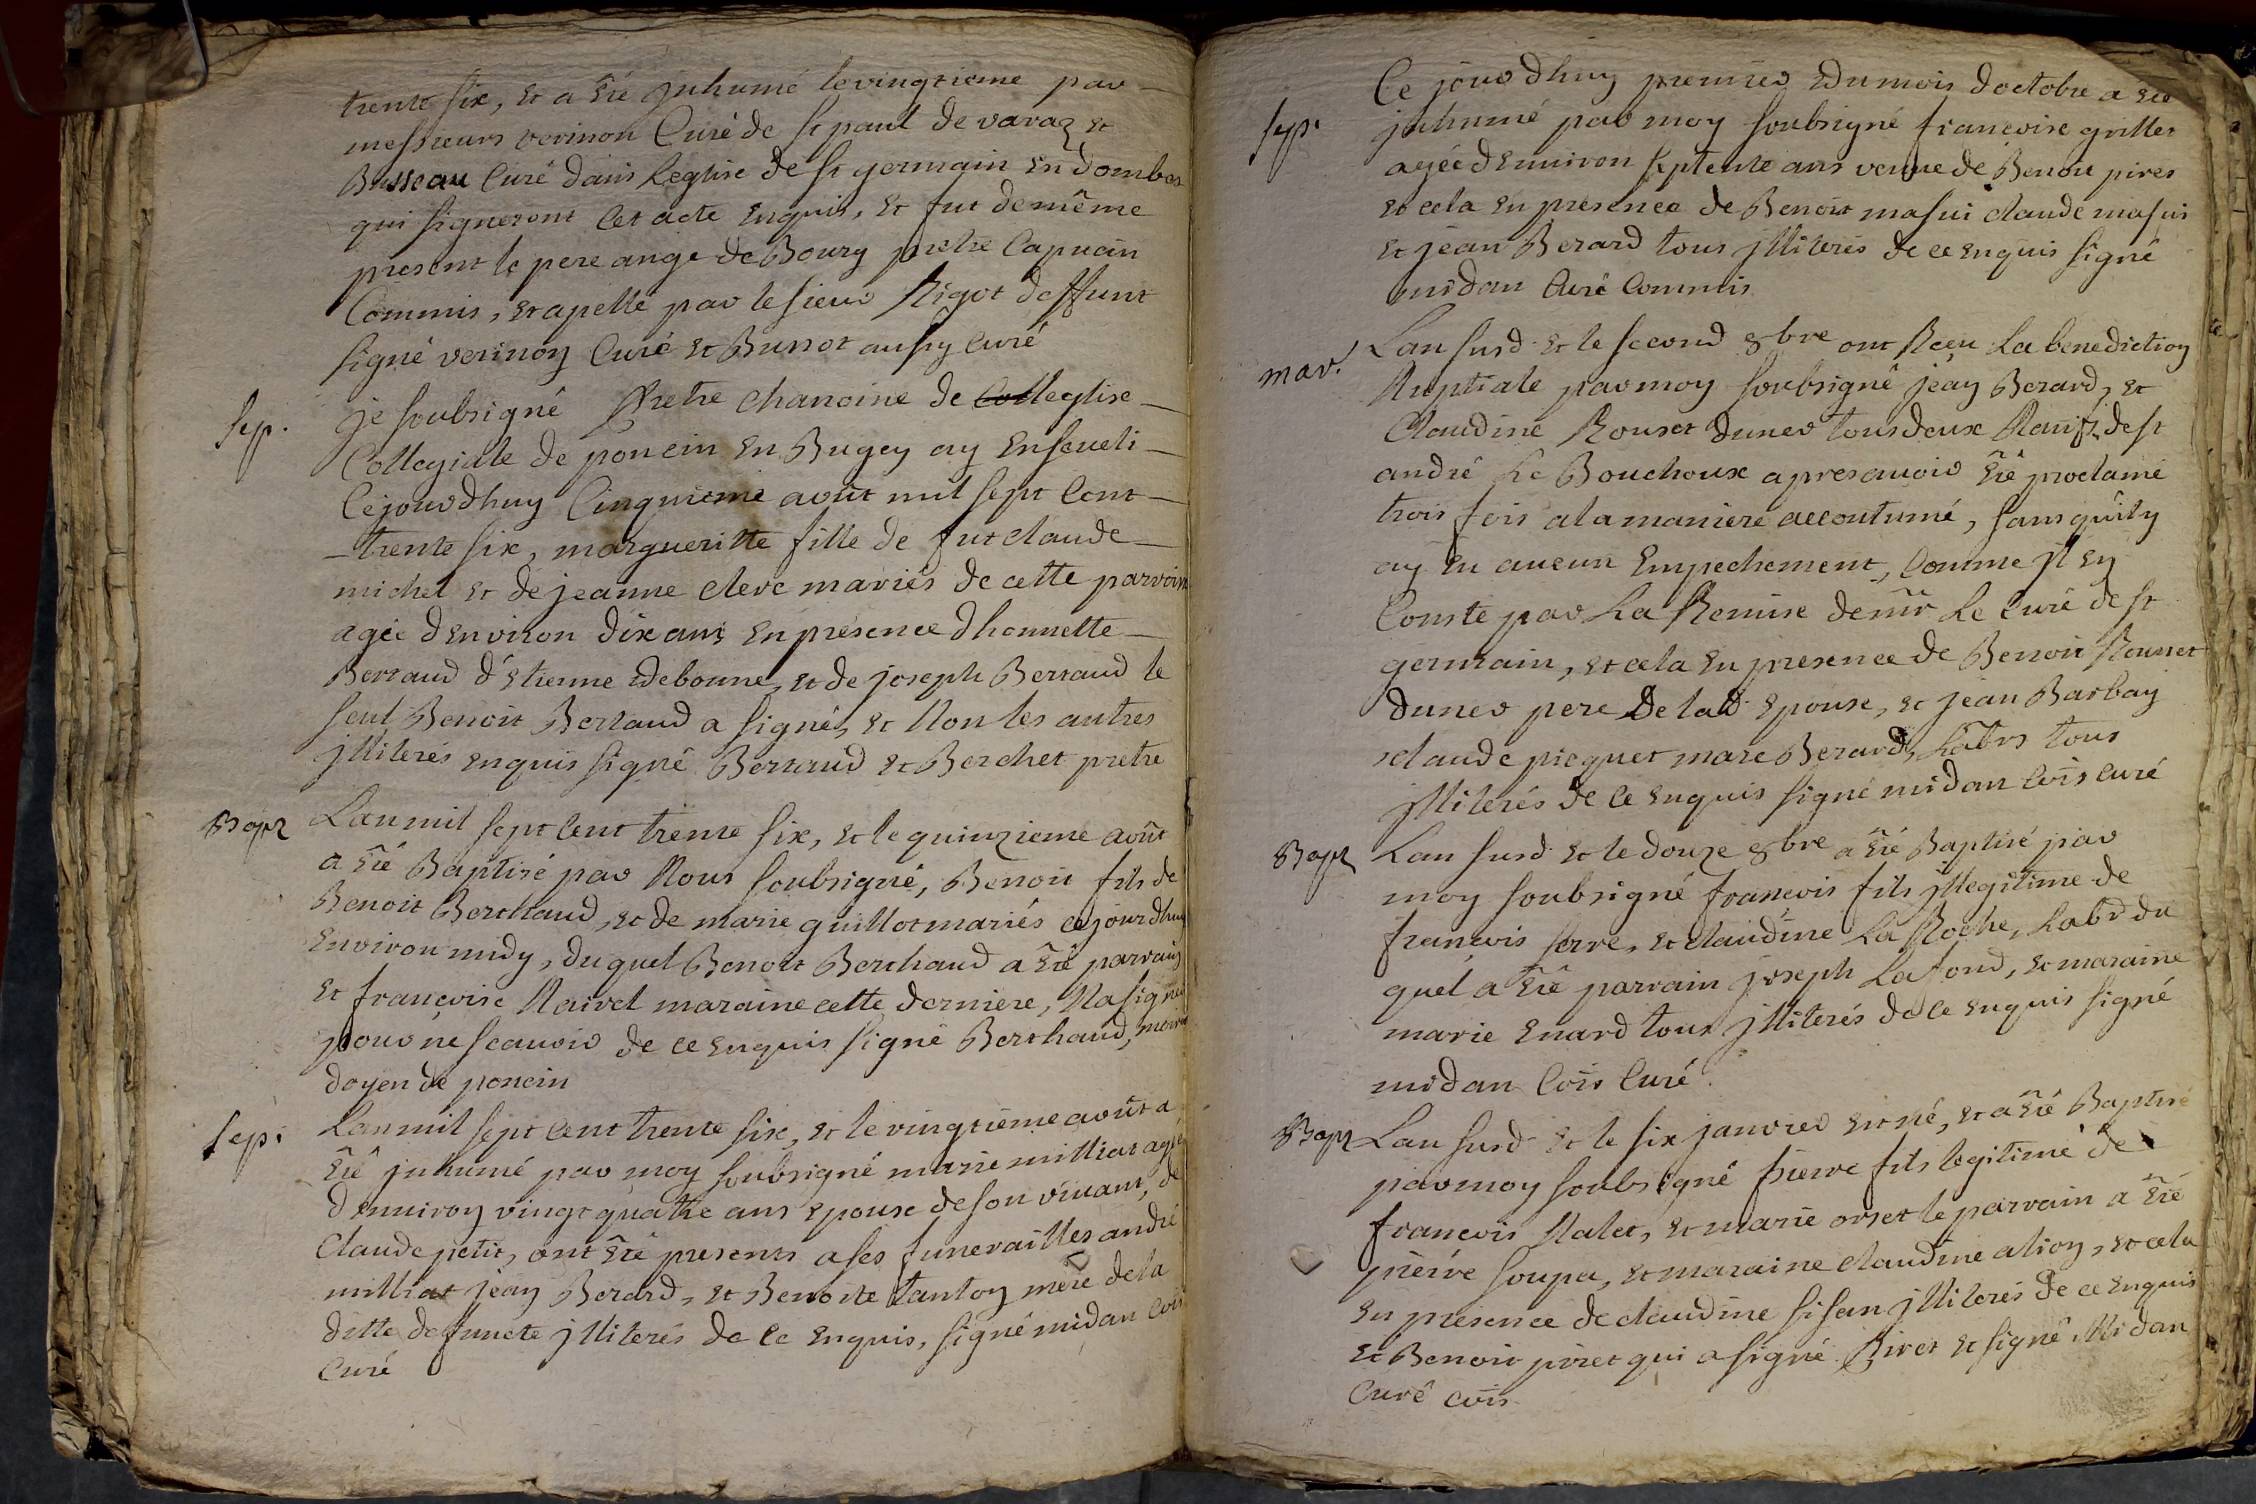 trente six, et a été inhumé le vingtieme par
messieurs verinon Curé de st paul de varaz et
Busseau Curé dans l'eglise de st germain en dombes
qui signeront cet acte enquis, et fut de même
present le pere ange de Bourg pretre Capucin
Commis, et apellé par le sieur Rigot deffunt
signé verinon Curé et Bussot aussy curé
Sep. je soubsigné Pretre chanoine de leglise
Collegiale de poncin en Bugey ay enseveli
Cejourdhuy Cinquieme août mil sept Cent
trente six, margueritte fille de fut claude
michel et de jeanne clerc mariés de cette parroisse
agée d'environ dix ans en présence d'honnette
Berraud d'Etienne debonne, et de joseph Berraud le
seul Benoit Berraud a signé, et Non les autres
jlliterés enquis signé Berraud et Berchet pretre
Bapt Lan mil sept Cent trente six, et le quinzieme août
a été Baptisé par Nous soubsigné, Benoit fils de
Benoit Berthaud, et de marie guillot mariés cejourdhuy
environ midy, duquel Benoit Berthaud a été parrain
et françoise Naivel maraine cette derniere, Na signé
pour ne scauoir de ce enquis signé Berthaud,
doyen de poncin
Sep. Lan mil sept Cent trente six, et le vingtieme août a
été inhumé par moy soubsigné marie milliat agée
denuiron vingt quatre ans epouse de son viuant, de
Claude petit, ont été presents a ses funerailles andré
milliat jean Berard, et Benoite tanton mere de la
ditte defuncte jlliterés de ce enquis, signé midan Cois
Curé
Ce jour dhuy premier du mois doctobre a été
Sep. jnhumé par moy soubsigné francoise grillet
agée denuiron septente ans veuue de Benoit pires
et cela en présence de Benoit masui claude masui
et jean Berard tous jlliterés de ce enquis signé
midan Curé Commis
mar. Lan susd. et le second 8bre ont Reçu La benediction
Nuptiale par moy soubsigné jean Berard, et
Claudine Rouset duner tous deux de st
andré Le Bouchoux apres auoir été proclamé
trois fois a la maniere accoutumé, sans qu'ily
ay eu aucun Empechement, Comme jl en
Conste par La Remise de mr Le Curé de st
germain, et cela en presence de Benoit Rousset
duner pere de lad. epouse, et jean Barbay
claude picquet marc Berard, Labrs tous
jlliterés de ce enquis signé midan Cois curé
Bapt Lan susd. et le douze 8bre a été Baptisé par
moy soubsigné francois fils jllegitime de
francois serve, et claudine La Roche, Labr du
quel a été parrain joseph Lafond, et maraine
marie Enard tous jlliterés de ce enquis signé
midan Cois Curé
Bapt Lan susd. et le six janvier est né, et a été Baptisé
par moy soubsigné pierre fils legitime de
francois Nalet, et marie orset le parrain a été
pierre soupa, et maraine claudine alion, et cela
en presence de claudine sisan jlliterés de ce enquis
et Benoit piret qui a signé. Piret et signé Midan
Curé cois